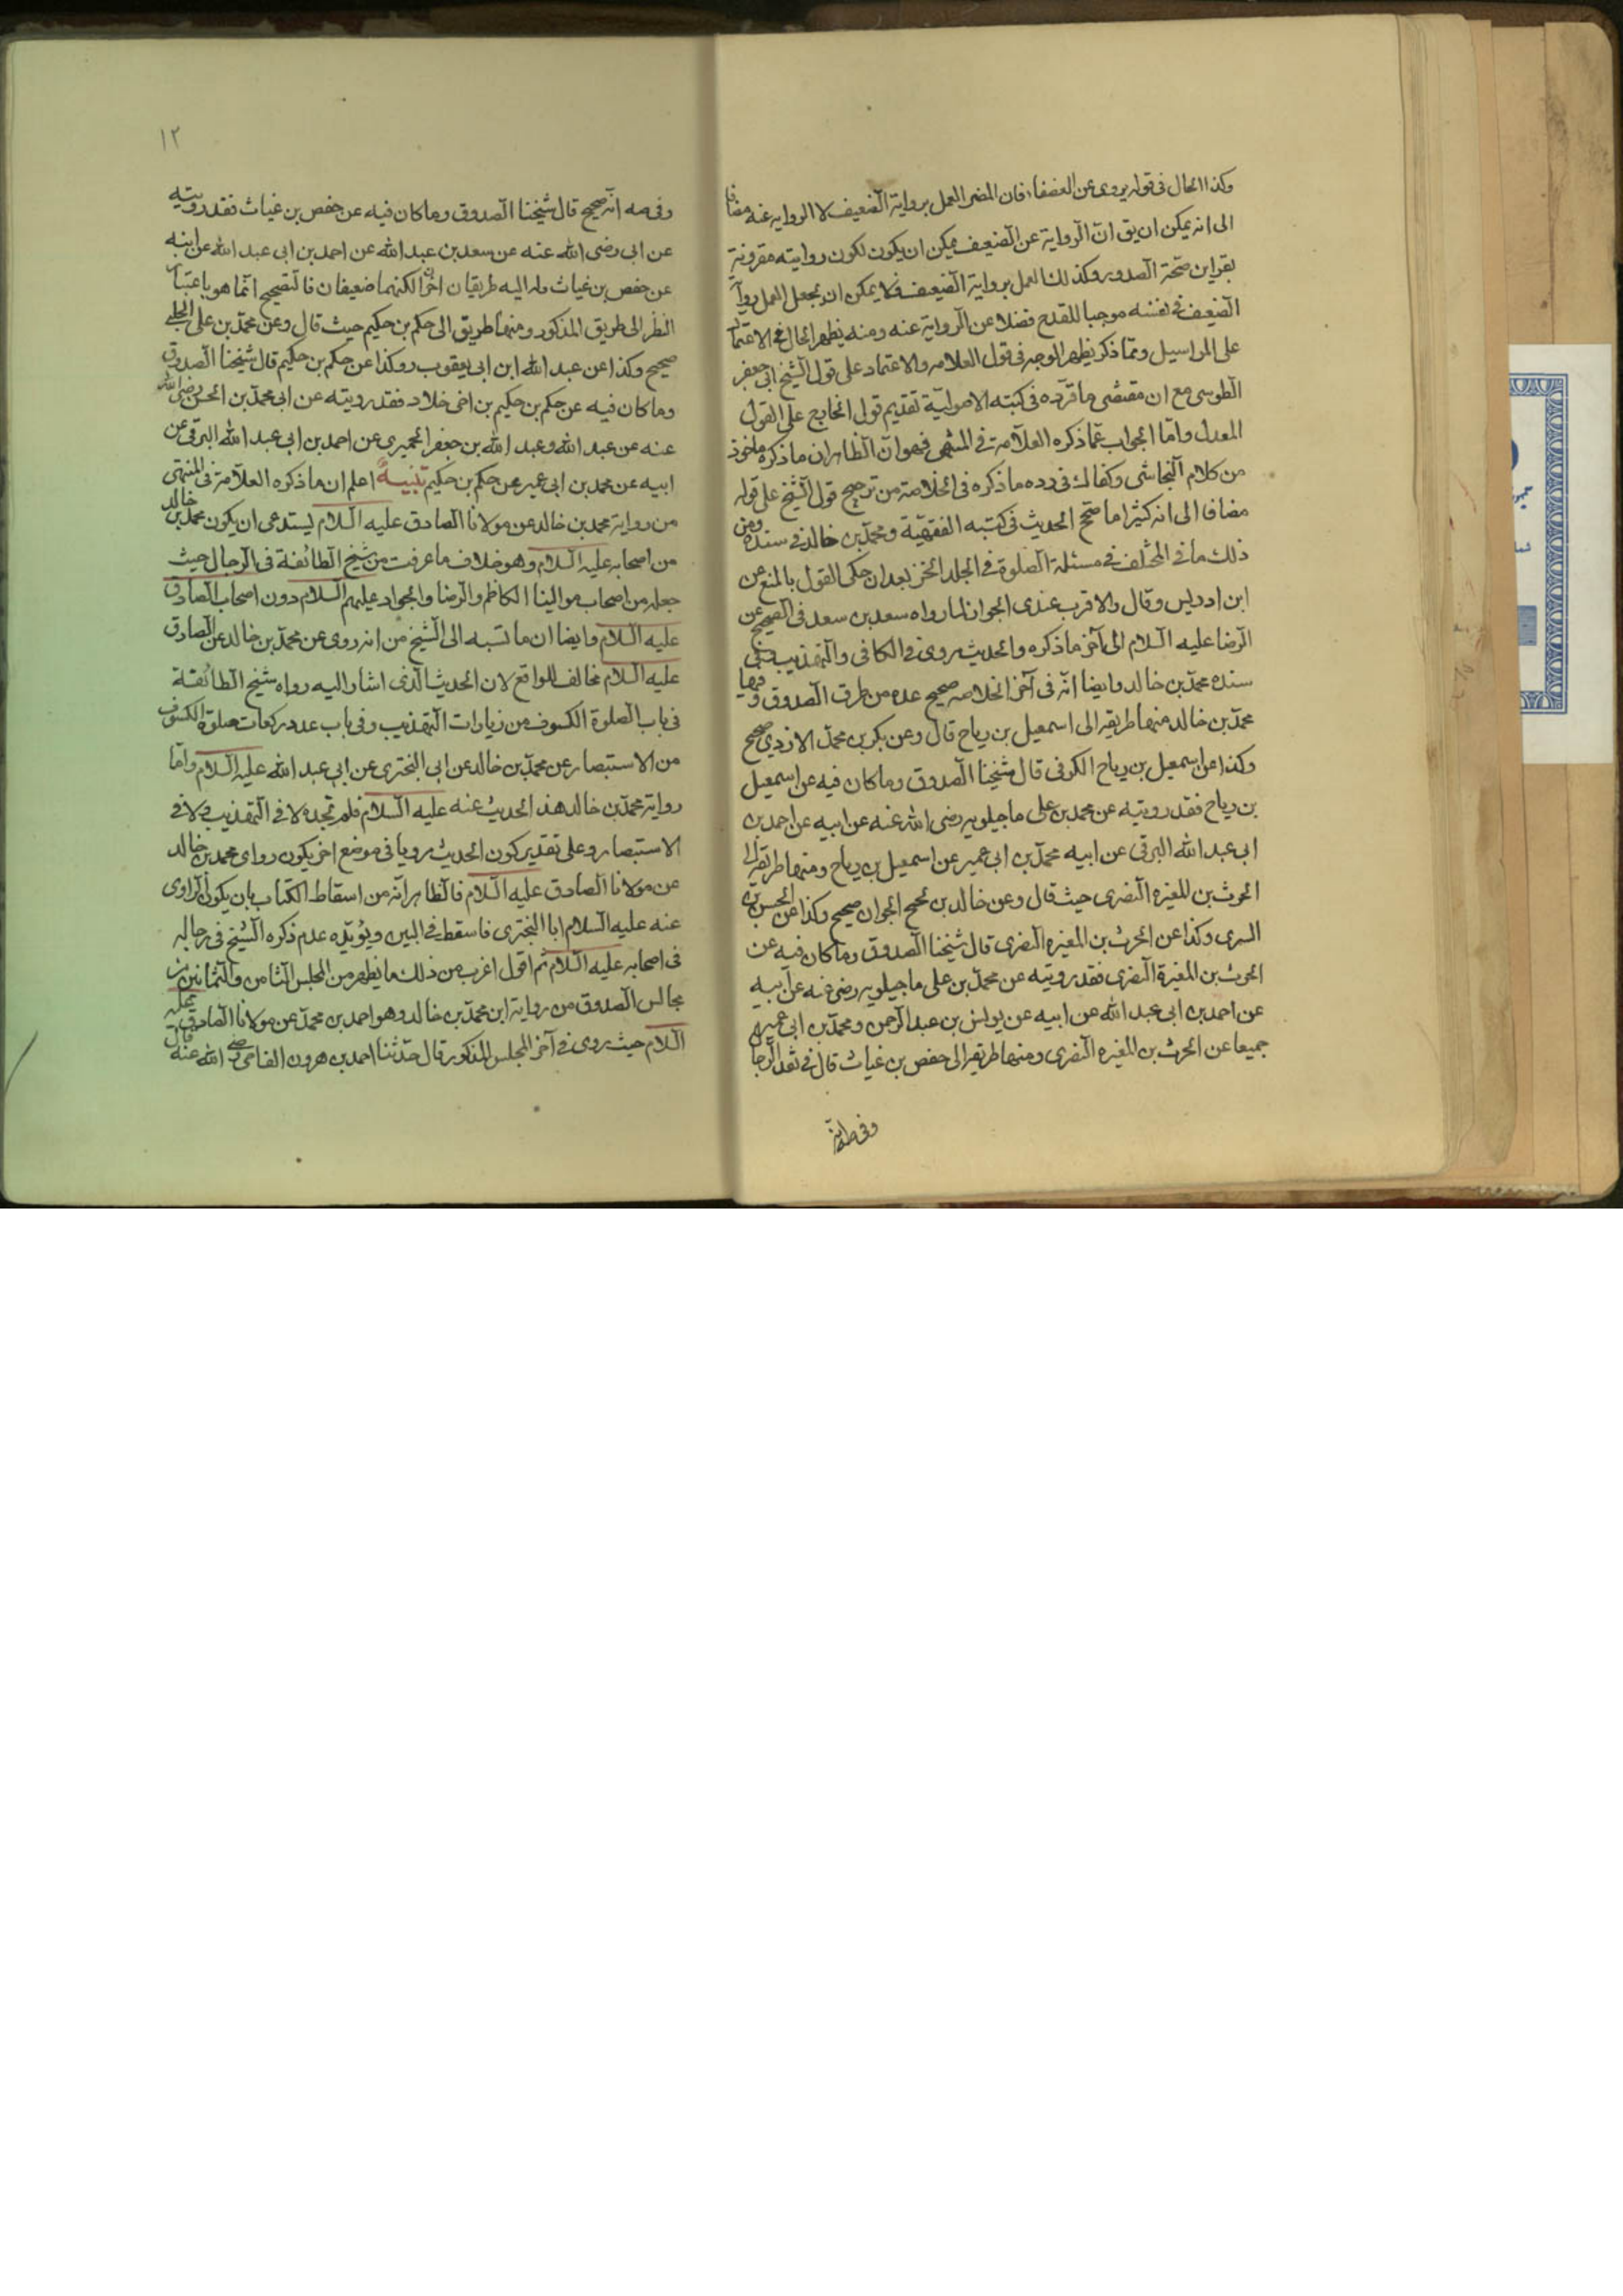 وكذا الحال فى قوله يروى عن الضعفاء فان المضر العمل برواية الضعيف لا الرواية عنه مضافا
الى انه يمكن ان يق ان الرواية عن الضعيف يمكن ان يكون لكون روايته مقرونة
بقراين صحة الصدور وكذلك العمل برواية الضعيف فلا يمكن ان يجعل العمل برواية
الضعيف فى نفسه موجبا للقدح فضلا عن الرواية عنه ومنه يظهر الحال فى الاعتماد
على المراسيل ومما ذكر يظهر الوجه فى قول العلامه والاعتماد على قول الشيخ ابى جعفر
الطوسى مع ان مقتضى ما قرره فى كتبه الاصولية تقديم قول الجارح على القول
المعدل واما الجواب عما ذكره العلامة فى المنتهى فهو ان الظاهر ان ما ذكره ماخوذ
من كلام النجاشى وكفاك فى رده ما ذكره فى الخلاصة من ترجيح قول الشيخ على قوله
مضافا الى انه كثيرا ما صحح الحديث فى كتبه الفقهية ومحمد بن خالد فى سنده ومن
ذلك ما فى المختلف فى مسئلة الصلوة فى الجلد الخز بعد ان حكى القول بالمنع عن
ابن ادريس وقال والاقرب عندى الجواز لنا ما رواه سعد بن سعد فى الصحيح عن
الرضا عليه السلام الى آخر ما ذكره والحديث مروى فى الكافى والتهذيب وفى
سنده محمد بن خالد وايضا انه فى آخر الخلاصه صحح عده من طرق الصدوق وفيها
محمد بن خالد منها طريقه الى اسمعيل بن رياح قال وعن بكر بن محمد الازدى صحيح
وكذا عن اسمعيل بن رياح الكوفى قال شيخنا الصدوق وما كان فيه عن اسمعيل
بن رياح فقد رويته عن محمد بن على ماجيلويه رضى الله عنه عن ابيه عن احمد بن
ابى عبد الله البرقى عن ابيه محمد بن ابى عمير عن اسمعيل بن رياح ومنها طريقه الى
الحرث بن المغيره النضرى حيث قال وعن خالد بن نجيح الجوان صحيح وكذا عن الحسن بن
السرى وكذا عن الحرث بن المغيره النضرى قال شيخنا الصدوق وما كان فيه عن
الحرث بن المغيرة النضرى فقد رويته عن محمد بن على ماجيلويه رضى عنه عن ابيه
عن احمد بن ابى عبد الله عن ابيه عن يونس بن عبد الرحمن ومحمد بن ابى عمير
جميعا عن الحرث بن المغيره النضرى ومنها طريقه الى حفص بن غياث قال فى نقد الرجا
وفى صه انه
١٢
وفى صه انه صحيح قال شيخنا الصدوق وما كان فيه عن حفص بن غياث فقد رويته
عن ابى رضى الله عنه عن سعد بن عبد الله عن احمد بن ابى عبد الله عن ابيه
عن حفص بن غياث وله اليه طريقان اخران لكنهما ضعيفان فالتصحيح انما هو باعتبار
النظر الى طريق المذكور ومنها طريق الى حكم بن حكيم حيث قال وعن محمد بن على الحلبى
صحيح وكذا عن عبد الله ابن ابى يعفوب وكذا عن حكم بن حكيم قال شيخنا الصدوق
وما كان فيه عن حكم بن حكيم بن اخى خلاد فقد رويته عن ابى محمد بن الحسن رضى الله
عنه عن عبد الله وعبد الله بن جعفر الحميرى عن احمد بن ابى عبد الله البرقى عن
ابيه عن محمد بن ابى عمير عن حكم بن حكيم تنبيه اعلم ان ما ذكره العلامة فى المنتهى
من رواية محمد بن خالد عن مولانا الصادق عليه السلام يستدعى ان يكون محمد بن خالد
من اصحابه عليه السلام وهو خلاف ما عرفت من شيخ الطائفة فى الرجال حيث
جعله من اصحاب موالينا الكاظم والرضا والجواد عليهم السلام دون اصحاب الصادق
عليه السلام وايضا ان ما نسبه الى الشيخ من انه روى عن محمد بن خالد عن الصادق
عليه السلام مخالف للواقع لان الحديث الذى اشار اليه رواه شيخ الطائفة
فى باب الصلوة الكسوف من زيارات التهذيب وفى باب عدد ركعات صلوة الكسوف
من الاستبصار عن محمد بن خالد عن ابى البخترى عن ابى عبد الله عليه السلام واما
رواية محمد بن خالد هذا الحديث عنه عليه السلام فلم نجده لا فى التهذيب ولا فى
الاستبصار وعلى تقدير كون الحديث مرويا فى موضع اخر يكون رواى محمد بن خالد
عن مولانا الصادق عليه السلام فالظاهر انه من اسقاط الكتاب بان يكون الراوى
عنه عليه السلام ابا البخترى فاسقط فى البين ويؤيده عدم ذكره الشيخ فى رجاله
فى اصحابه عليه السلام ثم اقول اغرب من ذلك ما يظهر من المجلس الثامن والثمانين من
مجالس الصدوق من رواية ابن محمد بن خالد وهو احمد بن محمد عن مولانا الصادق عليه
السلام حيث روى فى آخر المجلس المذكور قال حدثنا احمد بن هرون الفامى رضى الله عنه قال